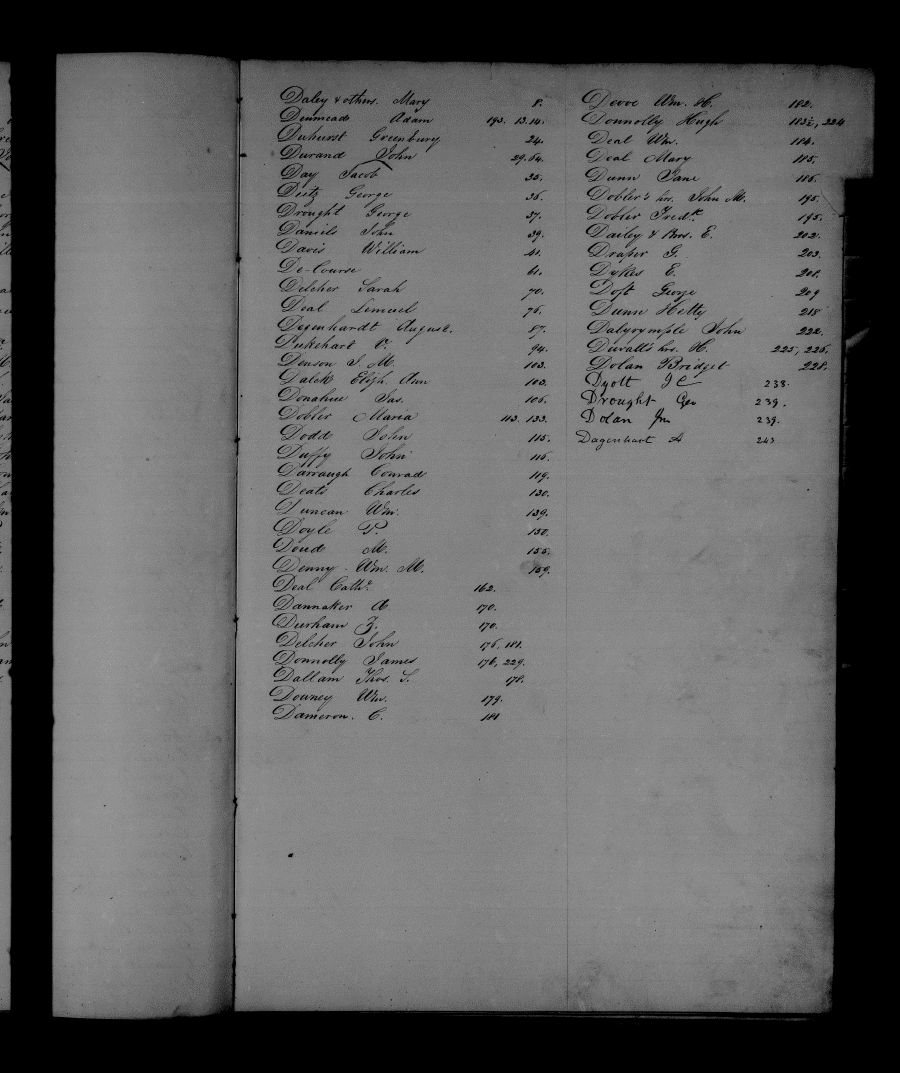 Daley & others. Mary 8.
Denmead Adam 193. 13.14.
Duhurst Greenbury 24.
Durand John 29.64.
Day Jacob 35.
Dietz George 36.
Drought George 37.
Daniels John 39.
Davis William 41.
De-Course 61.
Delcher Sarah 70.
Deal Lemuel 76.
Degenhardt August. 87.
Dukehart V. 94.
Denson J. M. 103.
Dalck Eliz. Ann 103.
Donahue Jas. 106.
Dobler Maria 113. 133.
Dodd John 115.
Duffy John 116.
Darraugh Conrad 119.
Deats Charles 130.
Duncan Wm. 139.
Doyle P. 150.
Doud M. 155.
Denny Wm. M. 159.
Deal Cath. 162.
Dannaker A 170.
Durham Z. 170.
Delcher John 176, 181.
Donnolly James 176, 229.
Dallam Thos. S. 178.
Downey Wm. 179.
Dameron. C. 181
Devoe Wm. H. 182.
Donnolly Hugh 183½, 224
Deal Wm. 184.
Deal Mary 185.
Dunn Jane 186.
Dobler's hrs. John M. 195.
Dobler Fredk. 195.
Dailey & Bros. E. 202.
Draper G. 203.
Dykes E. 208.
Doft George 209
Dunn Hetty 218
Dalyrymple John 222.
Duvall's hrs. H. 225, 226,
Dolan Bridget 228.
Dyott J C 238.
Drought Geo 239.
Dolan Jn 239.
Dagenhart A 243